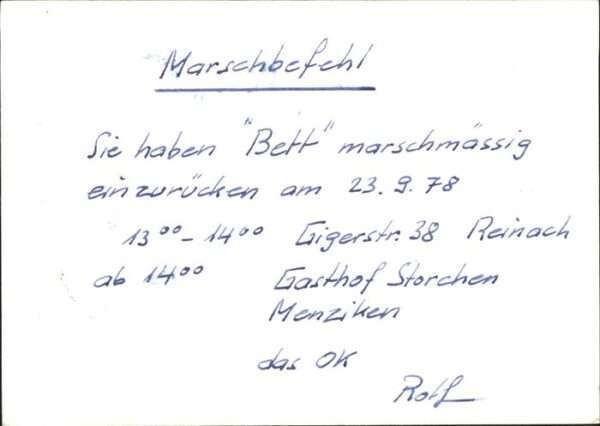 Marschbefehl
Sie haben "Bett" marschmässig
einzurücken am 23.9.78
13⁰⁰-14⁰⁰ Gigerstr. 38 Reinach
ab 14⁰⁰ Gasthof Storchen
Menziken
das OK
Rolf